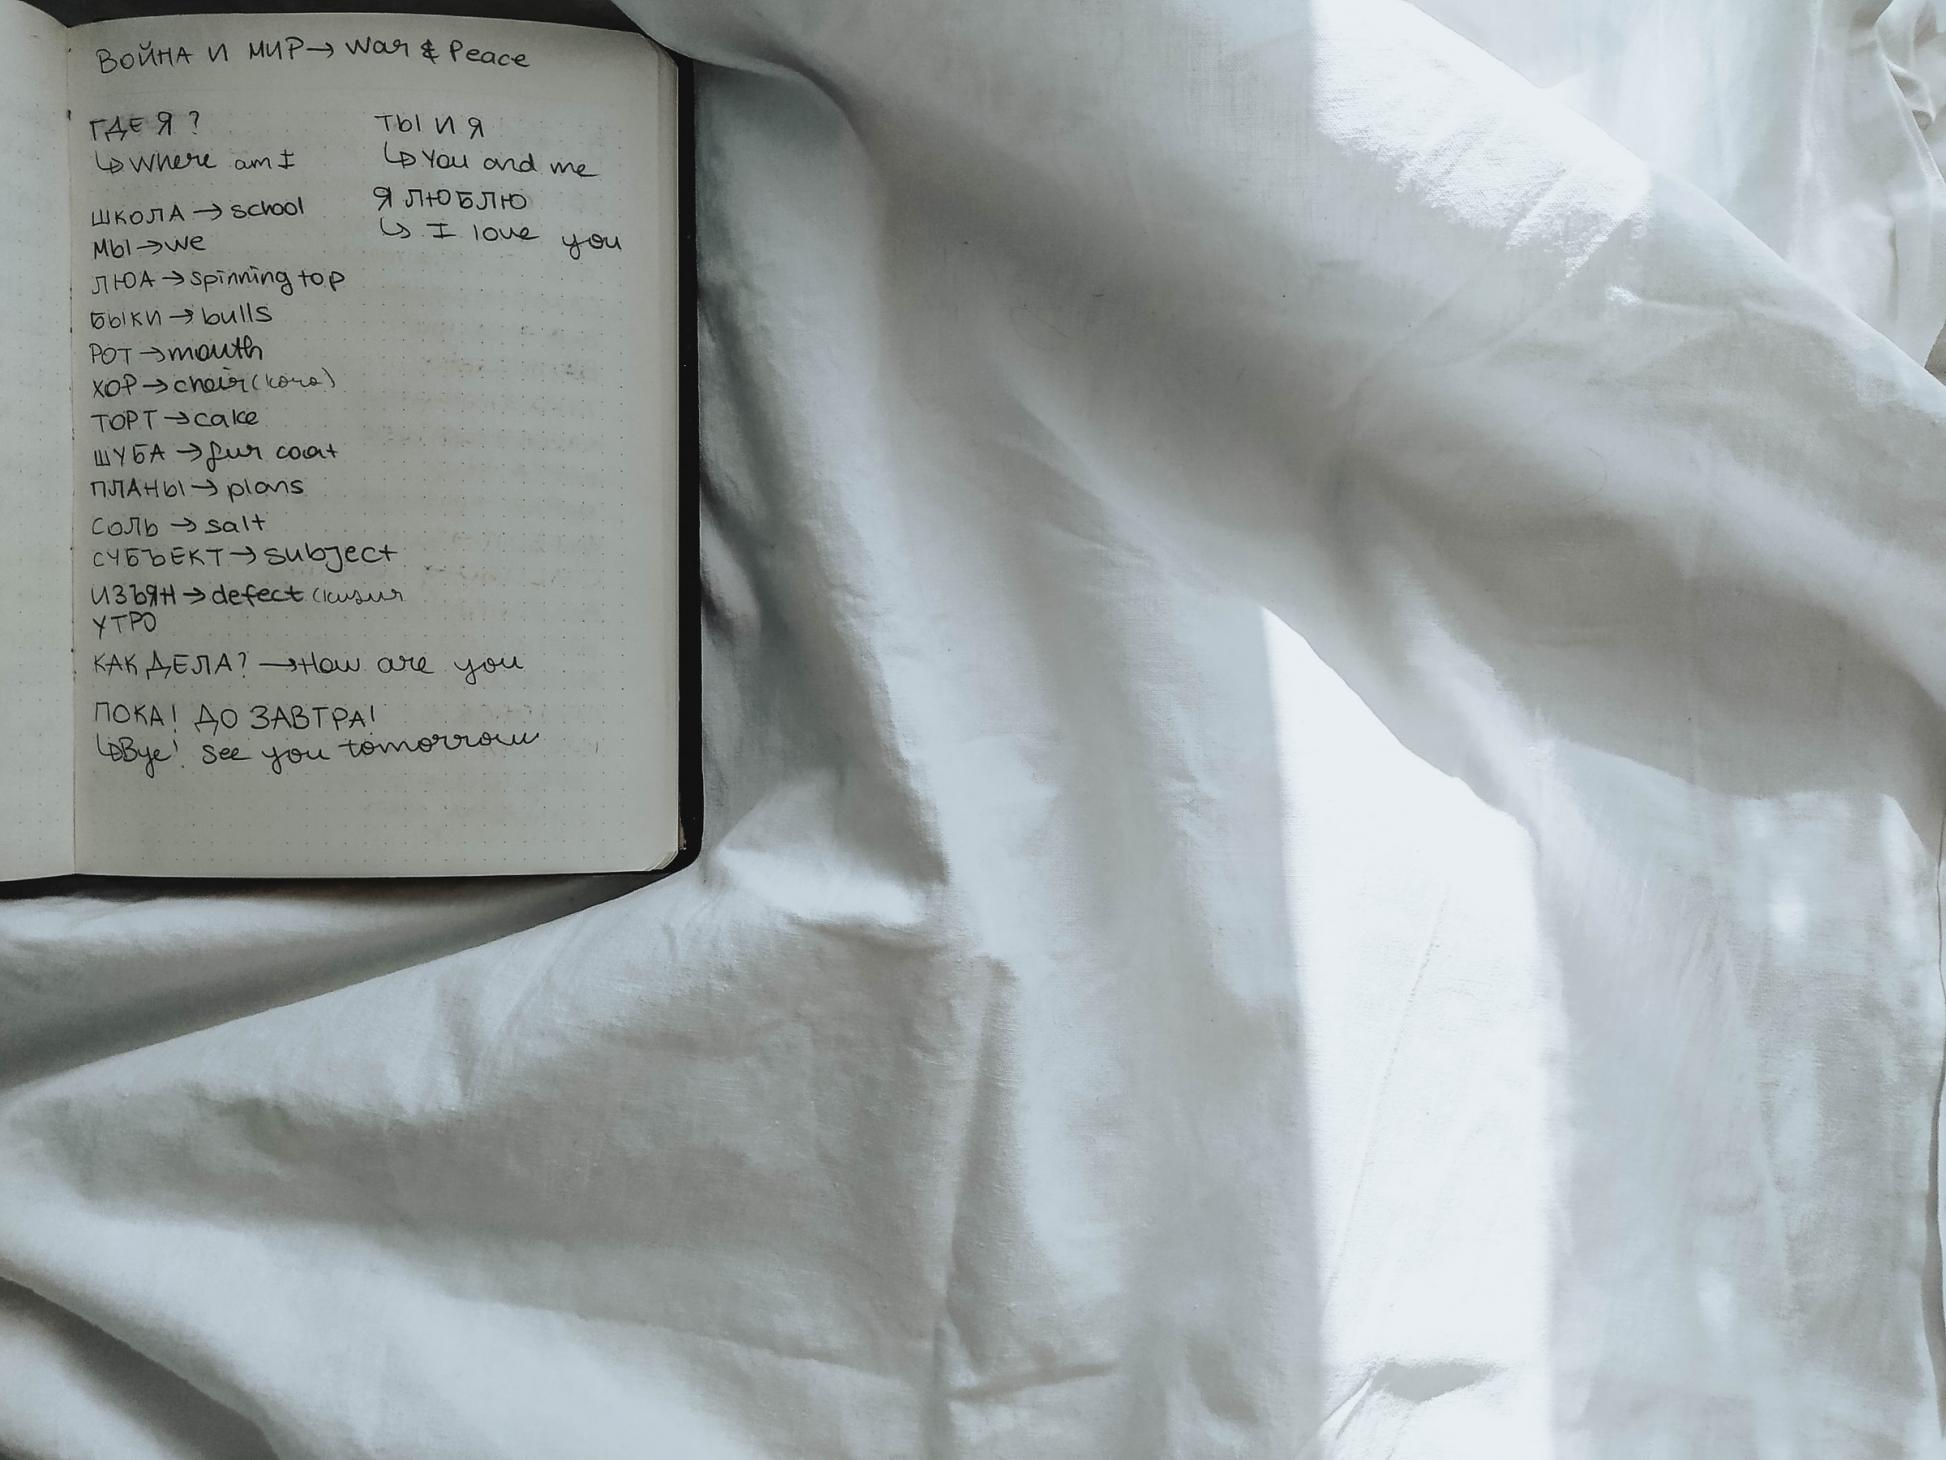 ВОЙНА И МИР → War & Peace
ГДЕ Я?
↳ Where am I
ШКОЛА → school
МЫ → we
ЛЮА → spinning top
БЫКИ → bulls
РОТ → mouth
ХОР → choir
ТОРТ → cake
ШУБА → fur coat
ПЛАНЫ → plans
СОЛЬ → salt
СУБЪЕКТ → subject
ИЗЪЯН → defect
УТРО
КАК ДЕЛА? → How are you
ПОКА! ДО ЗАВТРА!
↳ Bye! See you tomorrow
ТЫ И Я
↳ You and me
Я ЛЮБЛЮ
↳ I love you